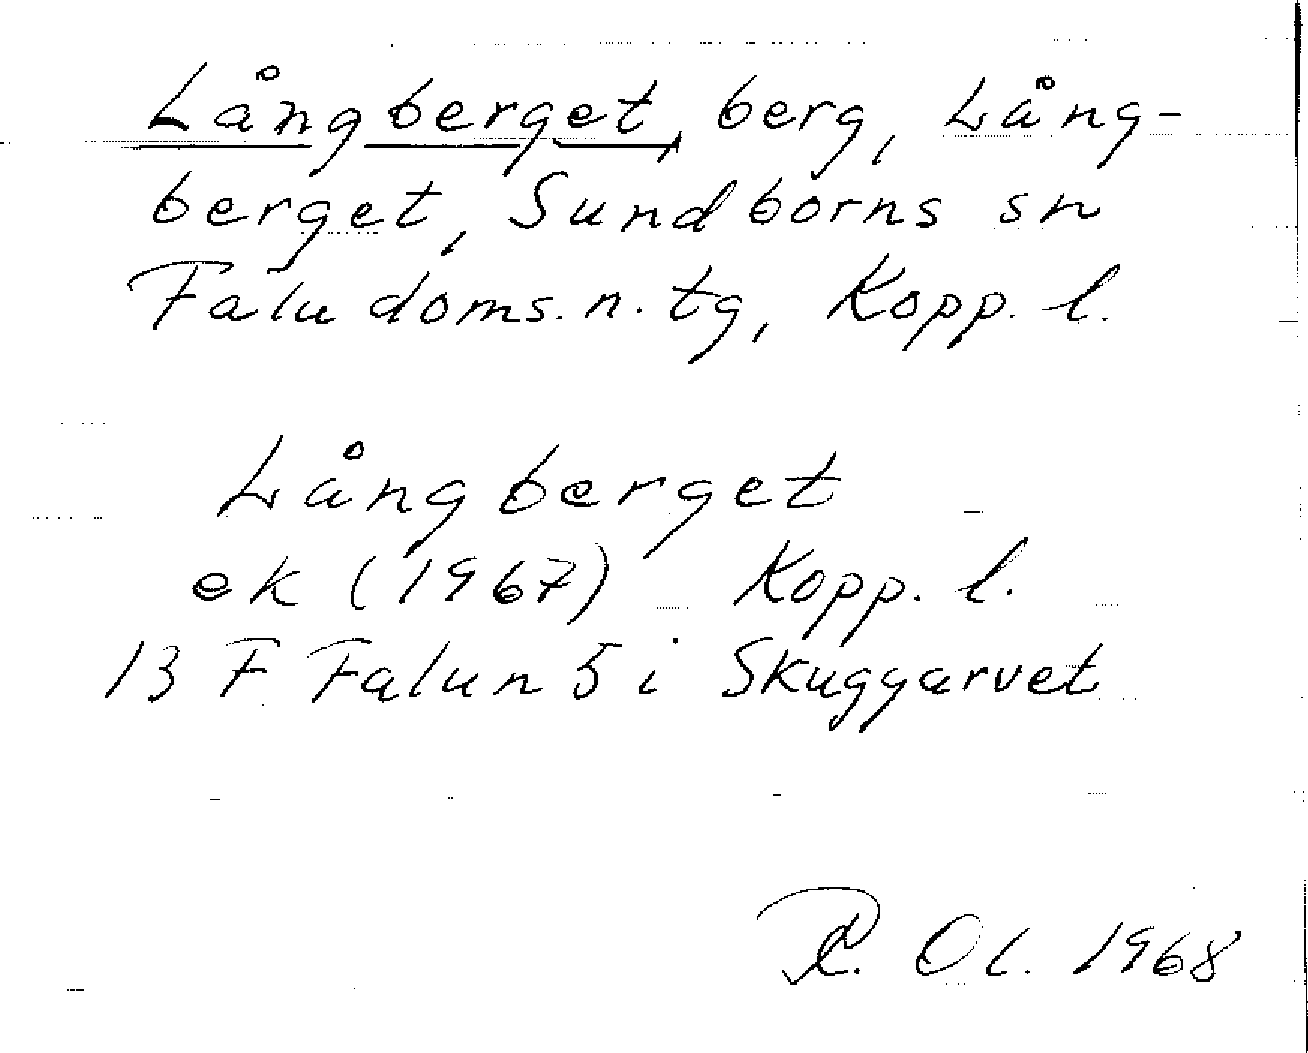 Långberget, berg, Lång-
berget, Sundborns sn
Falu doms. n. tg, Kopp. l.
Långberget
ek (1967) Kopp. l.
13 F Falun 5 i Skuggarvet
R. Ol. 1968